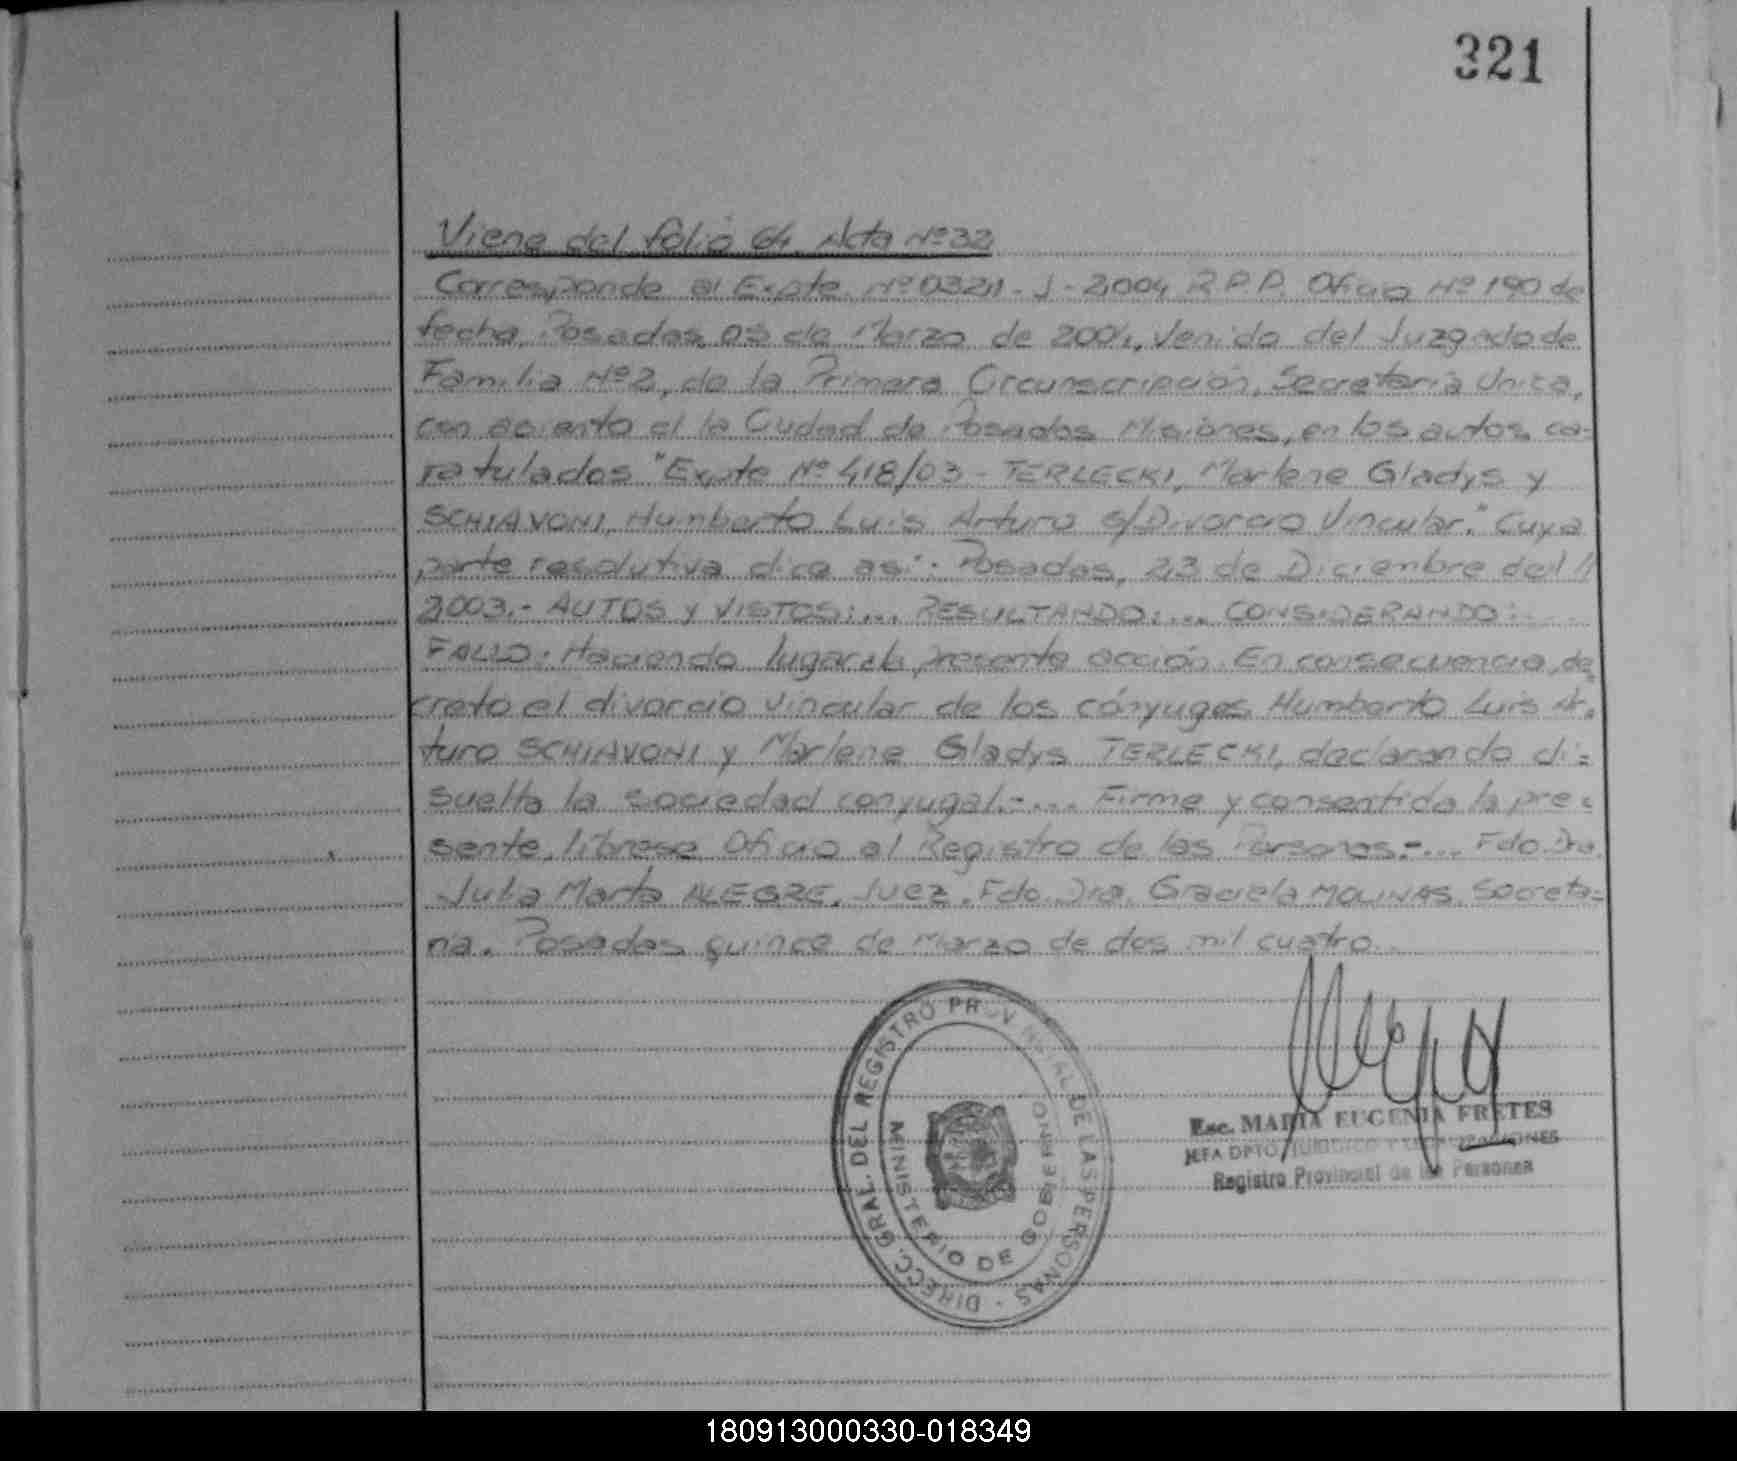 321
Viene del folio 64. Acta Nº 32
Corresponde al Expte. Nº 0321-J-2004 R.P.P. Oficio Nº 190 de
fecha, Posadas, 05 de Marzo de 2004, Venido del Juzgado de
Familia Nº 2, de la Primera Circunscripción, Secretaria Unica,
con asiento el la Ciudad de Posadas Misiones, en los autos ca-
ratulados "Expte Nº 418/03 - TERLECKI, Marlene Gladys y
SCHIAVONI, Humberto Luis Arturo s/Divorcio Vincular." Cuya
parte resolutiva dice asi: Posadas, 23 de Diciembre del //
2003.- AUTOS y VISTOS:... RESULTANDO:... CONSIDERANDO:...
FALLO: Haciendo lugar a la presente acción. En consecuencia, de
creto el divorcio vincular de los cónyuges Humberto Luis Ar-
turo SCHIAVONI y Marlene Gladys TERLECKI, declarando di=
suelta la sociedad conyugal.-... Firme y consentida la pre-
sente, líbrese Oficio al Registro de las Personas.-... Fdo. Dra.
Julia Marta ALEGRE. Juez. Fdo. Dra. Graciela MOLINAS. Secreta=
ria. Posadas quince de Marzo de dos mil cuatro.
DIRECC. GRAL. DEL REGISTRO PROVINCIAL DE LAS PERSONAS
MINISTERIO DE GOBIERNO
Esc. MARIA EUGENIA FRETES
JEFA DPTO. JURIDICO Y LEGALIZACIONES
Registro Provincial de las Personas
180913000330-018349